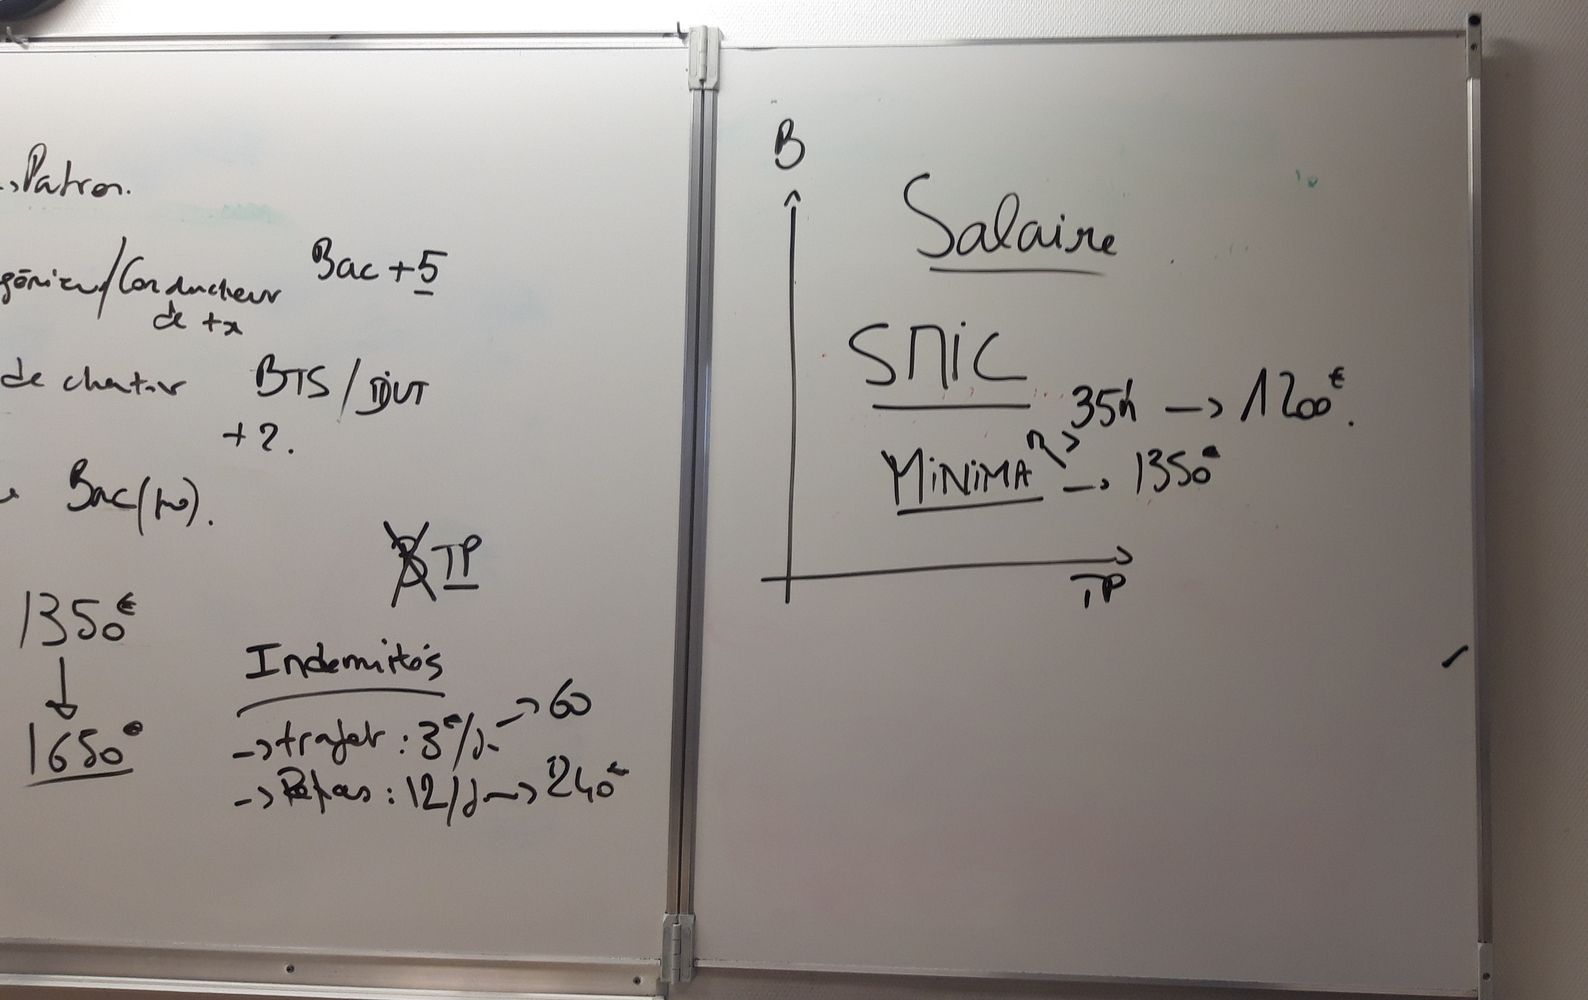 Patron.
génieur/Conducteur Bac +5
de tx
de chantier BTS / DUT
+2.
Bac (pro).
BTP
1350€
1650€
Indemnités
-> trajet : 3€/j. -> 60
-> Repas : 12/j -> 240€
B
Salaire
SMIC
35h -> 1200€.
MINIMA -> 1350€
TP